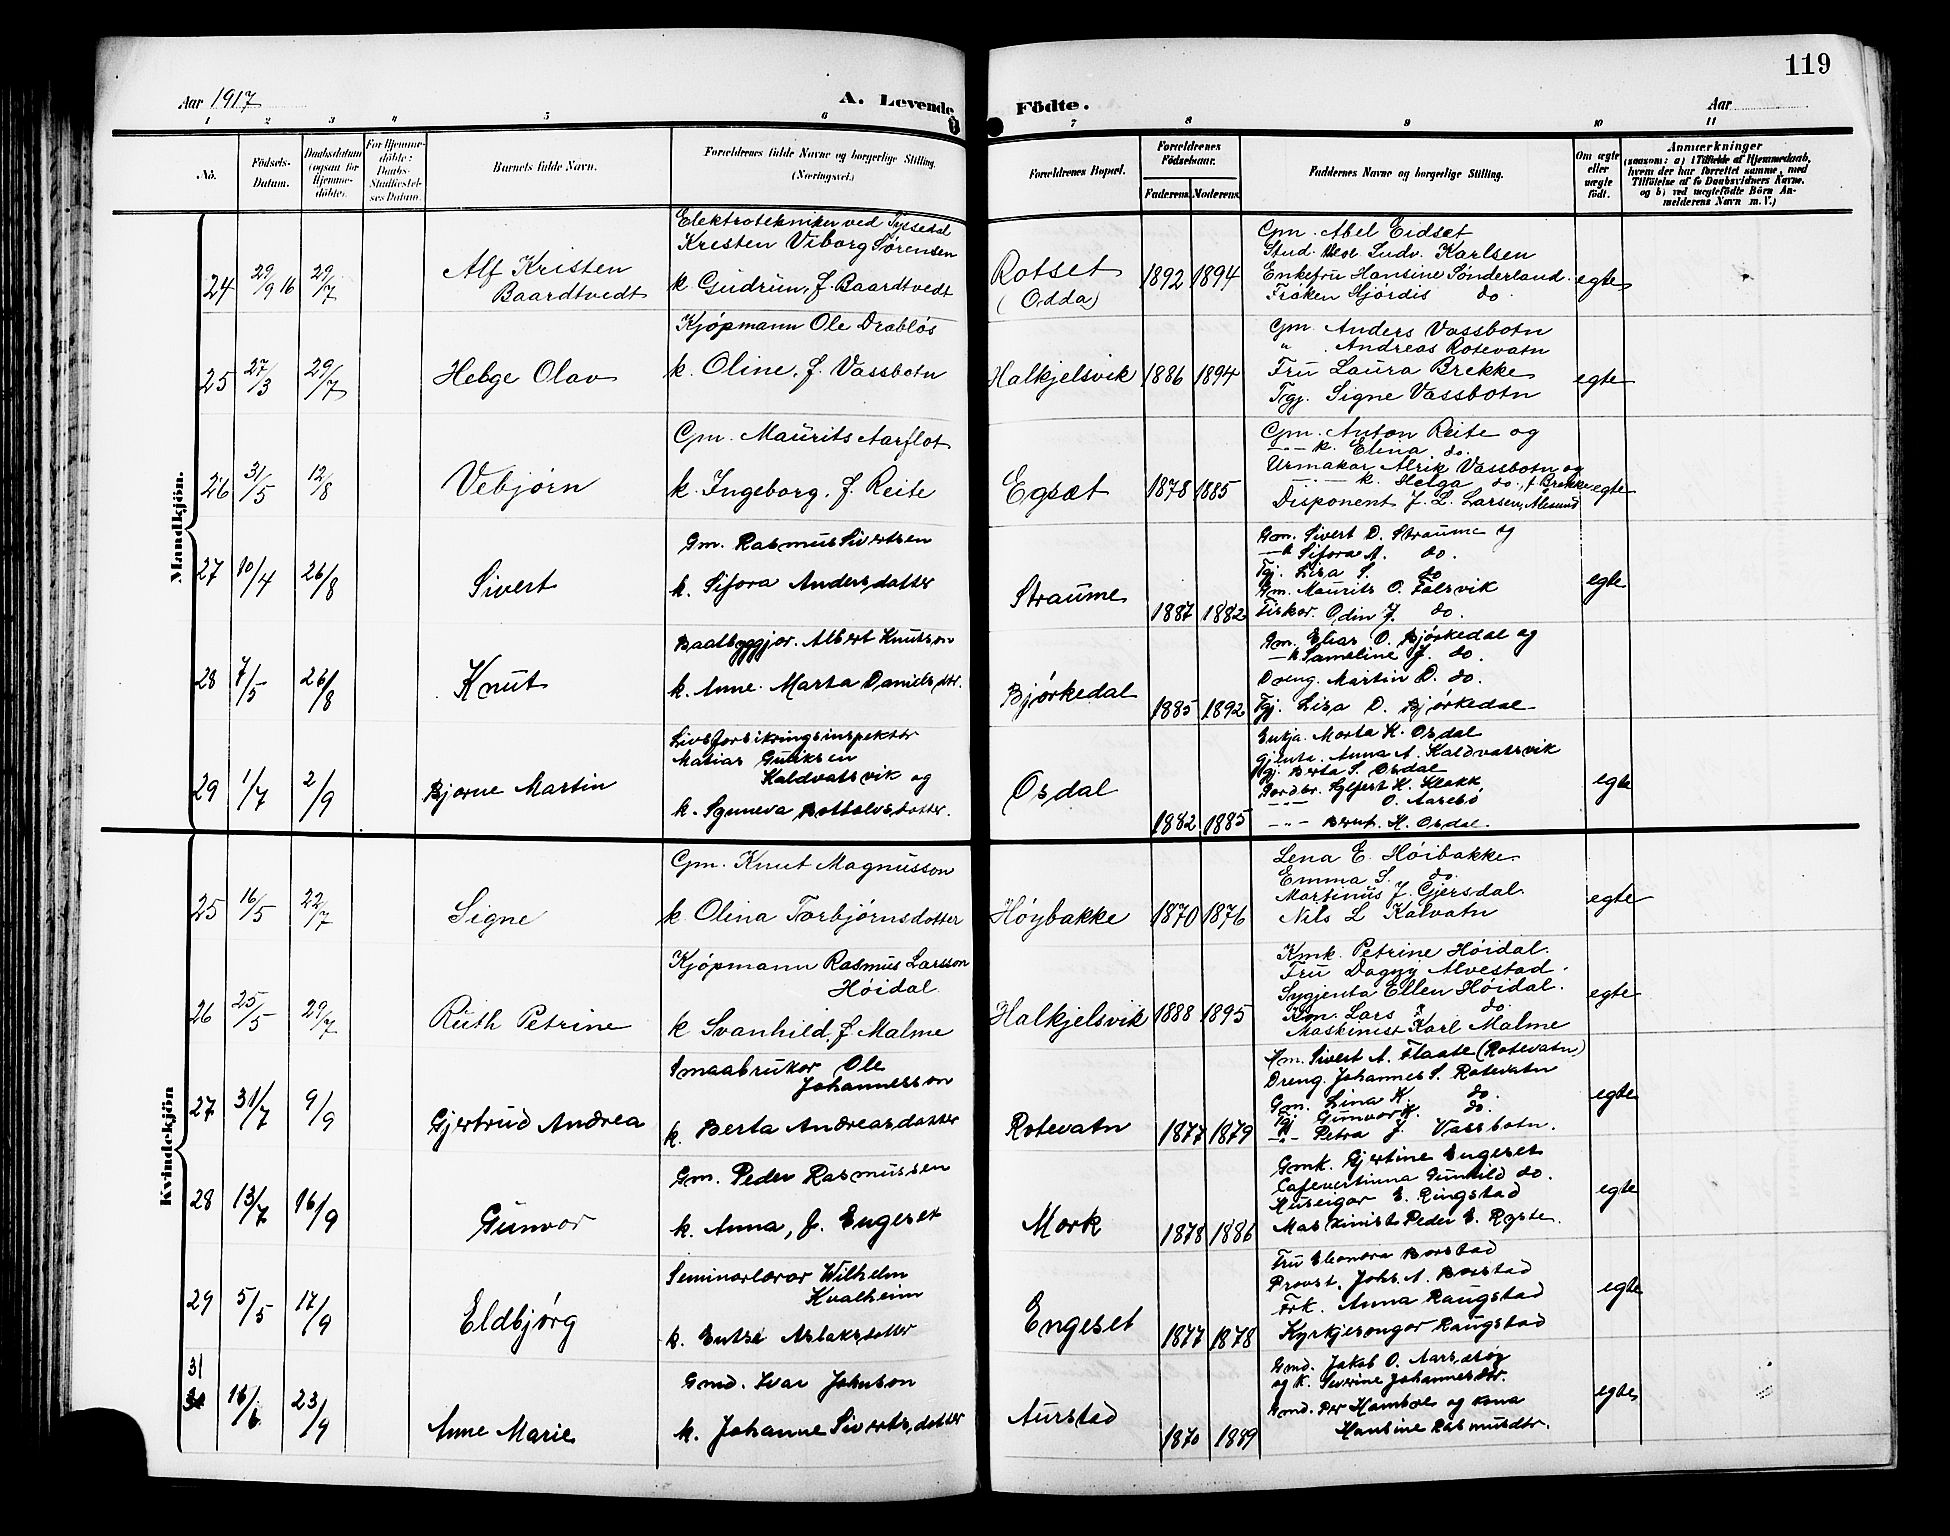 119
Aar 1917
A. Levende
Födte.
Aar
1 2 3 4 5 6 7 8 9 10 11
No.
Födsels-Datum.
Daabsdatum (ogsaa for Hjemmedöbte).
For Hjemmedöbte: Daabs-Stadfæstelses Datum.
Barnets fulde Navn.
Forældrenes fulde Navne og borgerlige Stilling. (Næringsvei.)
Forældrenes Bopæl.
Forældrenes Födselsaar.
Faderens. Moderens.
Faddernes Navne og borgerlige Stilling.
Om ægte eller uægte födt.
Anmærkninger
(saasom: a) i Tilfælde af Hjemmedaab, hvem der har forrettet samme, med Tilföielse af to Daabsvidners Navne, og b) ved uægtefödte Börn Anmelderens Navn m. V.)
Mandkjön.
24 29/9 16 29/7 Alf Kristen Baardtvedt
Elektrotekniker ved Tyssedal
Kristen Viborg Sørensen
k. Gudrun, f. Baardtvedt
Rotset (Odda) 1892 1894
Gm. Abel Eidset
Stud. Ludv. Karlsen
Enkefru Hansine Sønderland
Frøken Hjørdis do.
egte
25 27/3 29/7 Helge Olav
Kjøpmann Ole Drabløs
k. Oline, f. Vassbotn
Halkjelsvik 1886 1894
Gm. Anders Vassbotn
" Andreas Rotevatn
Fru Laura Brekke
Tgj. Signe Vassbotn
egte
26 31/5 12/8 Vebjørn
Gm. Maurits Aarflot
k. Ingeborg, f. Reite
Egset 1878 1885
Gm. Anton Reite og
—"— k. Elina do.
Urmakar Alrik Vassbotn og
—"— k. Helga do., f. Brekke
Disponent J. L. Larsen, Alesund
egte
27 10/4 26/8 Sivert
Gm. Rasmus Sivertsen
k. Sifora Andersdatter
Straume 1887 1882
Gm. Sivert D. Straume og
—k Sifora A. do.
Tgj. Lisa S. do
Gm. Maurits O. Følsvik
Fiskar. Odin J. do.
egte
28 7/5 26/8 Knut
Baatbyggjar. Albert Knutson
k. Anne Marta Daniels.dtr.
Bjørkedal 1885 1892
Gm. Elias O. Bjørkedal og
—k Sameline J. do.
Dreng. Martin D. do.
Tgj. Lisa D. Bjørkedal
29 1/7 2/9 Bjarne Martin
Livsforsikringsinspektør
Matias Guliksen
Kaldvatsvik og
k. Synneva Bottolvsdatter.
Osdal 1882 1885
Enkja. Marta K. Osdal
Gjenta. Anna A. Kaldvatsvik
Tgj. Berta S. Osdal
Gardbr. Sylfest H. Klokk,
—"— O. Aasebø
—"— Bernt. H. Osdal.
egte
Kvindekjön
25 16/5 22/7 Signe
Gm. Knut Magnusson
k Olina Torbjørnsdotter
Høybakke 1870 1876
Lena E. Høibakke
Emma S. do.
Martinus J. Gjersdal.
Nils L Kalvatn
egte
26 25/5 29/7 Ruth Petrine
Kjøpmann Rasmus Larsson
Høidal.
k Svanhild, f Malme
Halkjelsvik 1888 1895
Kmk. Petrine Høidal.
Fru Dagny Alvestad.
Sygjenta Ellen Høidal.
Km. Lars do.
Maskinist Karl Malme
egte
27 31/7 9/9 Gjertrud Andrea
Smaabrukar Ole
Johannesson
k. Berta Andreasdatter
Rotevatn 1877 1879
Km. Sivert A. Flaate (Rotevatn)
Dreng. Johannes S. Rotevatn
Gm. Lina K. do.
Tgj Gunvor K. do.
—"— Petra J. Vassbotn.
egte
28 13/7 16/9 Gunvor
Gm. Peder Rasmussen
k. Anna, f. Engeset
Mork 1878 1886
Gmk. Gjertine Engeset
Cafevertinna Gunhild do.
Huseigar E. Ringstad
Maskinist Peder E. Røste.
egte
29 5/5 17/9 Eldbjørg
Seminarlærar Wilhelm
Kvalheim
k. Entse Aslaksdotter
Engeset 1877 1878
Fru Eleonora Barstad
Provst. Johs. A. Barstad
Frk. Anna Raugstad
Kyrkjesongar Raugstad
egte
31
30 16/6 23/9 Anne Marie
Gmd. Ivar Johnson
k. Johanne Sivertsdatter
Aurstad 1870 1889
Gmd. Jakob O. Aarsæter
og k. Severine Johannesdtr.
Gmd. Per Hambre og kona
Hansine Rasmusdtr.
egte